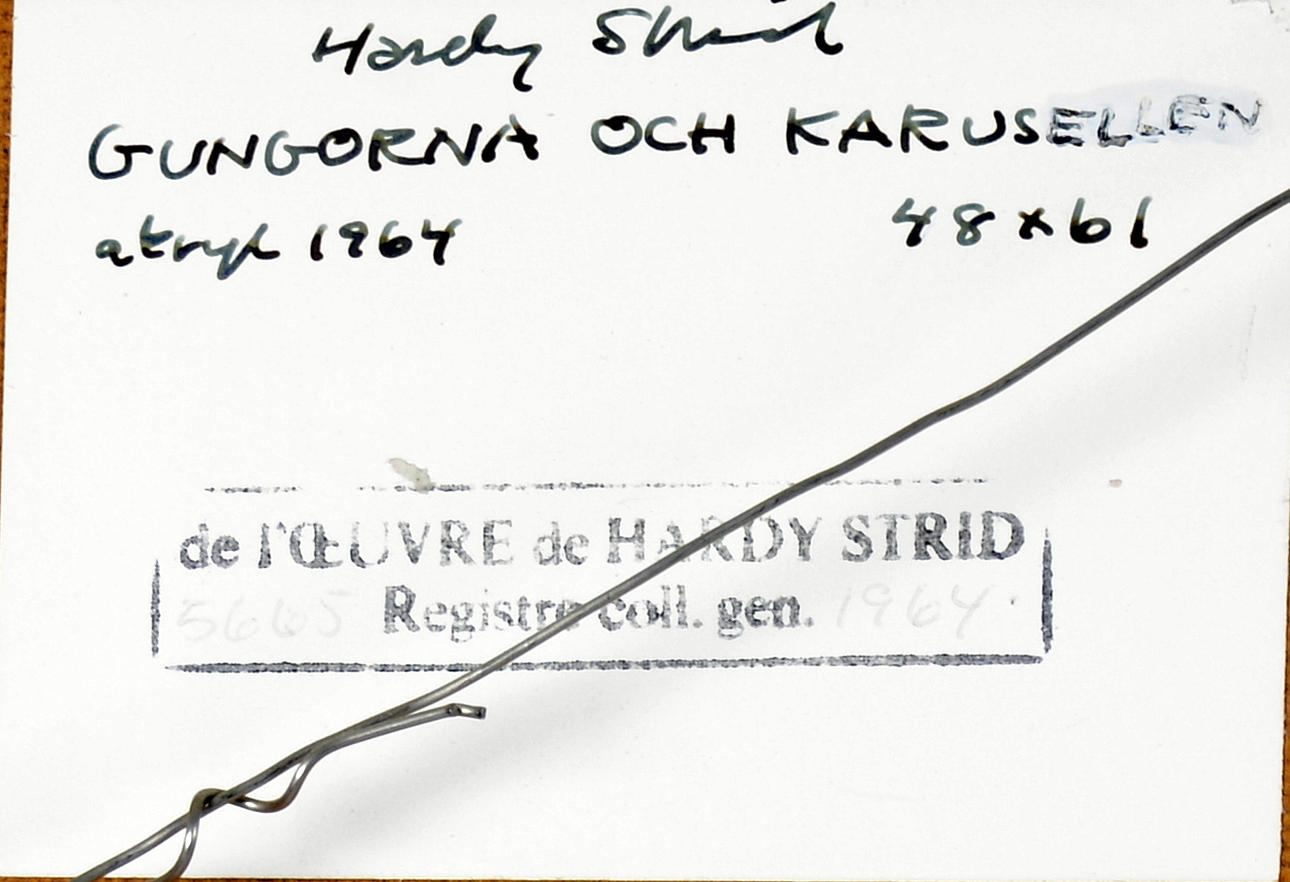 Hardy Strid
GUNGORNA OCH KARUSELLEN
akryl 1964 48x61
de l'ŒUVRE de HARDY STRID
5665 Registre coll. gen. 1964